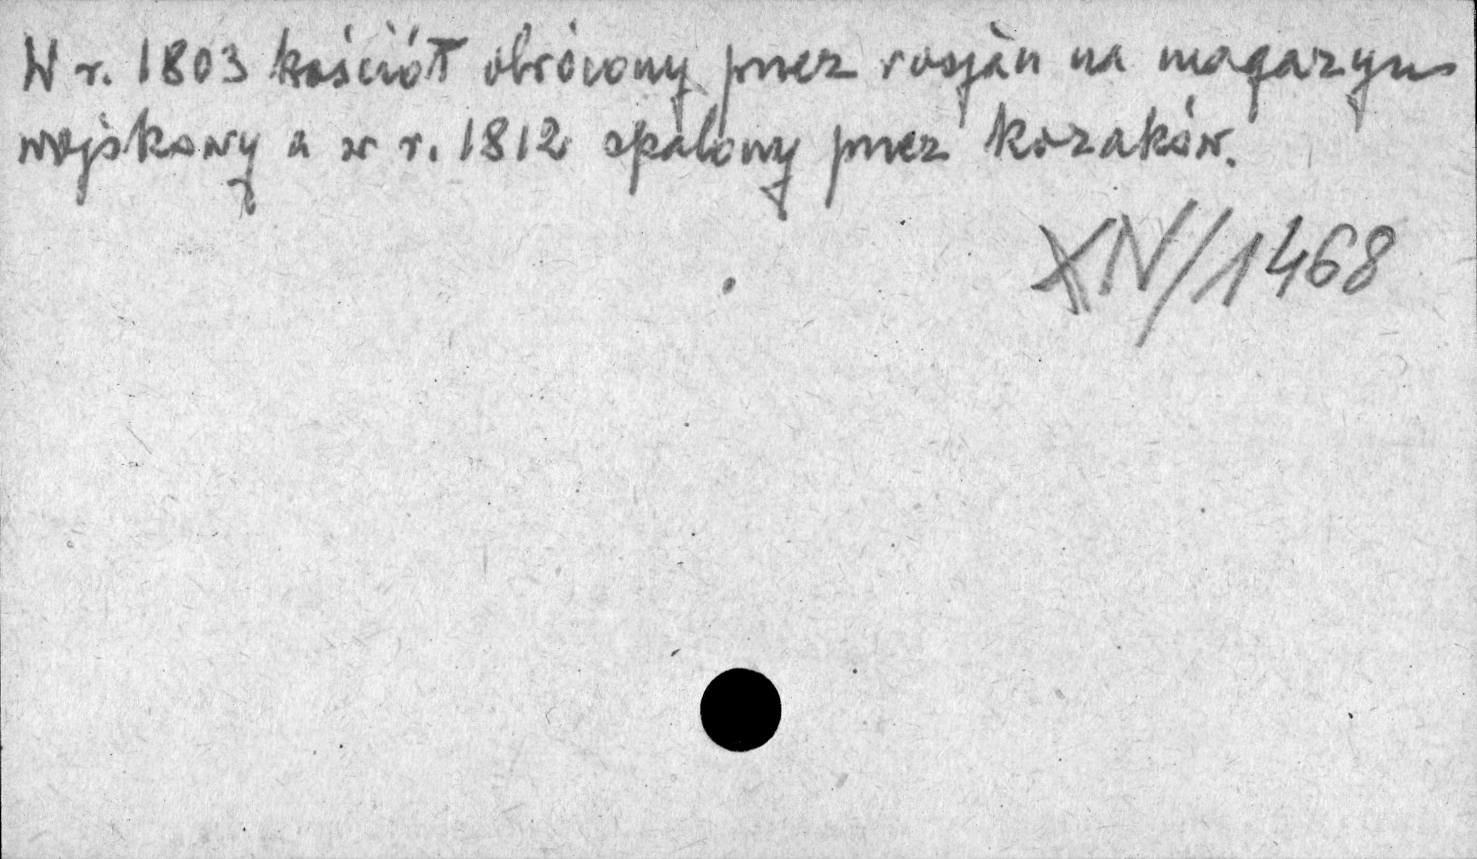 W r. 1803 kościół obrócony przez rosjan na magazyn
wojskowy a w r. 1812 spalony przez kozaków.
XIV/1468